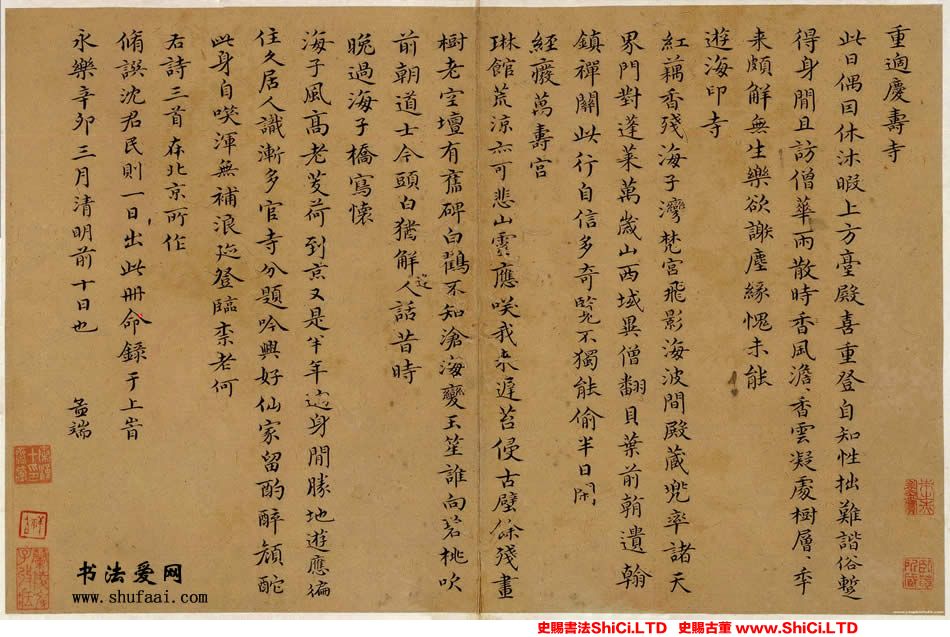 重適慶壽寺
此日偶因休沐暇上方臺殿喜重登自知性拙難諧俗暫
得身閒且訪僧華雨散時香風澹〻香雲凝處樹層〻年
来頗解無生樂欲謝塵緣愧未能
遊海印寺
紅藕香殘海子灣梵宮飛影海波間殿藏兜率諸天
界門對蓬萊萬歲山西域異僧翻貝葉前翰遺翰
鎮禪關此行自信多奇覽不獨能偷半日閑
經廢萬壽宮
琳館荒涼亦可悲山靈應咲我来遲苔侵古壁餘殘畫
樹老空壇有舊碑白鸛不知滄海變玉笙誰向碧桃吹
前朝道士今頭白猶解人話昔時
逢
晚過海子橋寫懷
海子風高老芰荷到京又是半年過身閒勝地遊應徧
住久居人識漸多官寺分題吟興好仙家留酌醉顏酡
此身自咲渾無補浪跡登臨柰老何
右詩三首在北京所作
脩譔沈君民則一日出此冊命錄于上旹
永樂辛卯三月清明前十日也
孟端
书法爱网
www.shufaai.com
史賜書法ShiCi.LTD 史賜古董 www.ShiCi.LTD